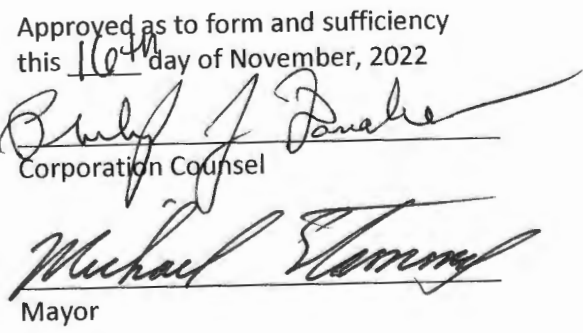 Approved as to form and sufficiency
this 16th day of November, 2022
J
Corporation Counsel
Michael
Mayor